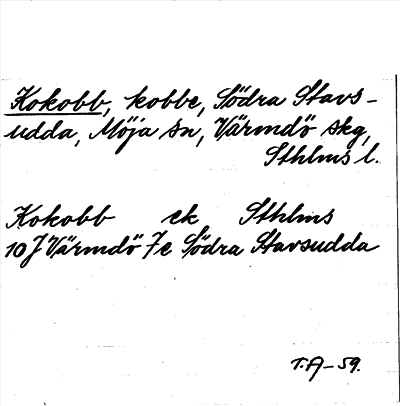 Kokobb, kobbe, Södra Stavs-
udda, Möja sn, Värmdö skg,
Sthlms l.
Kokobb ek Sthlms
10 J Värmdö 7e Södra Stavsudda
T.A-59.